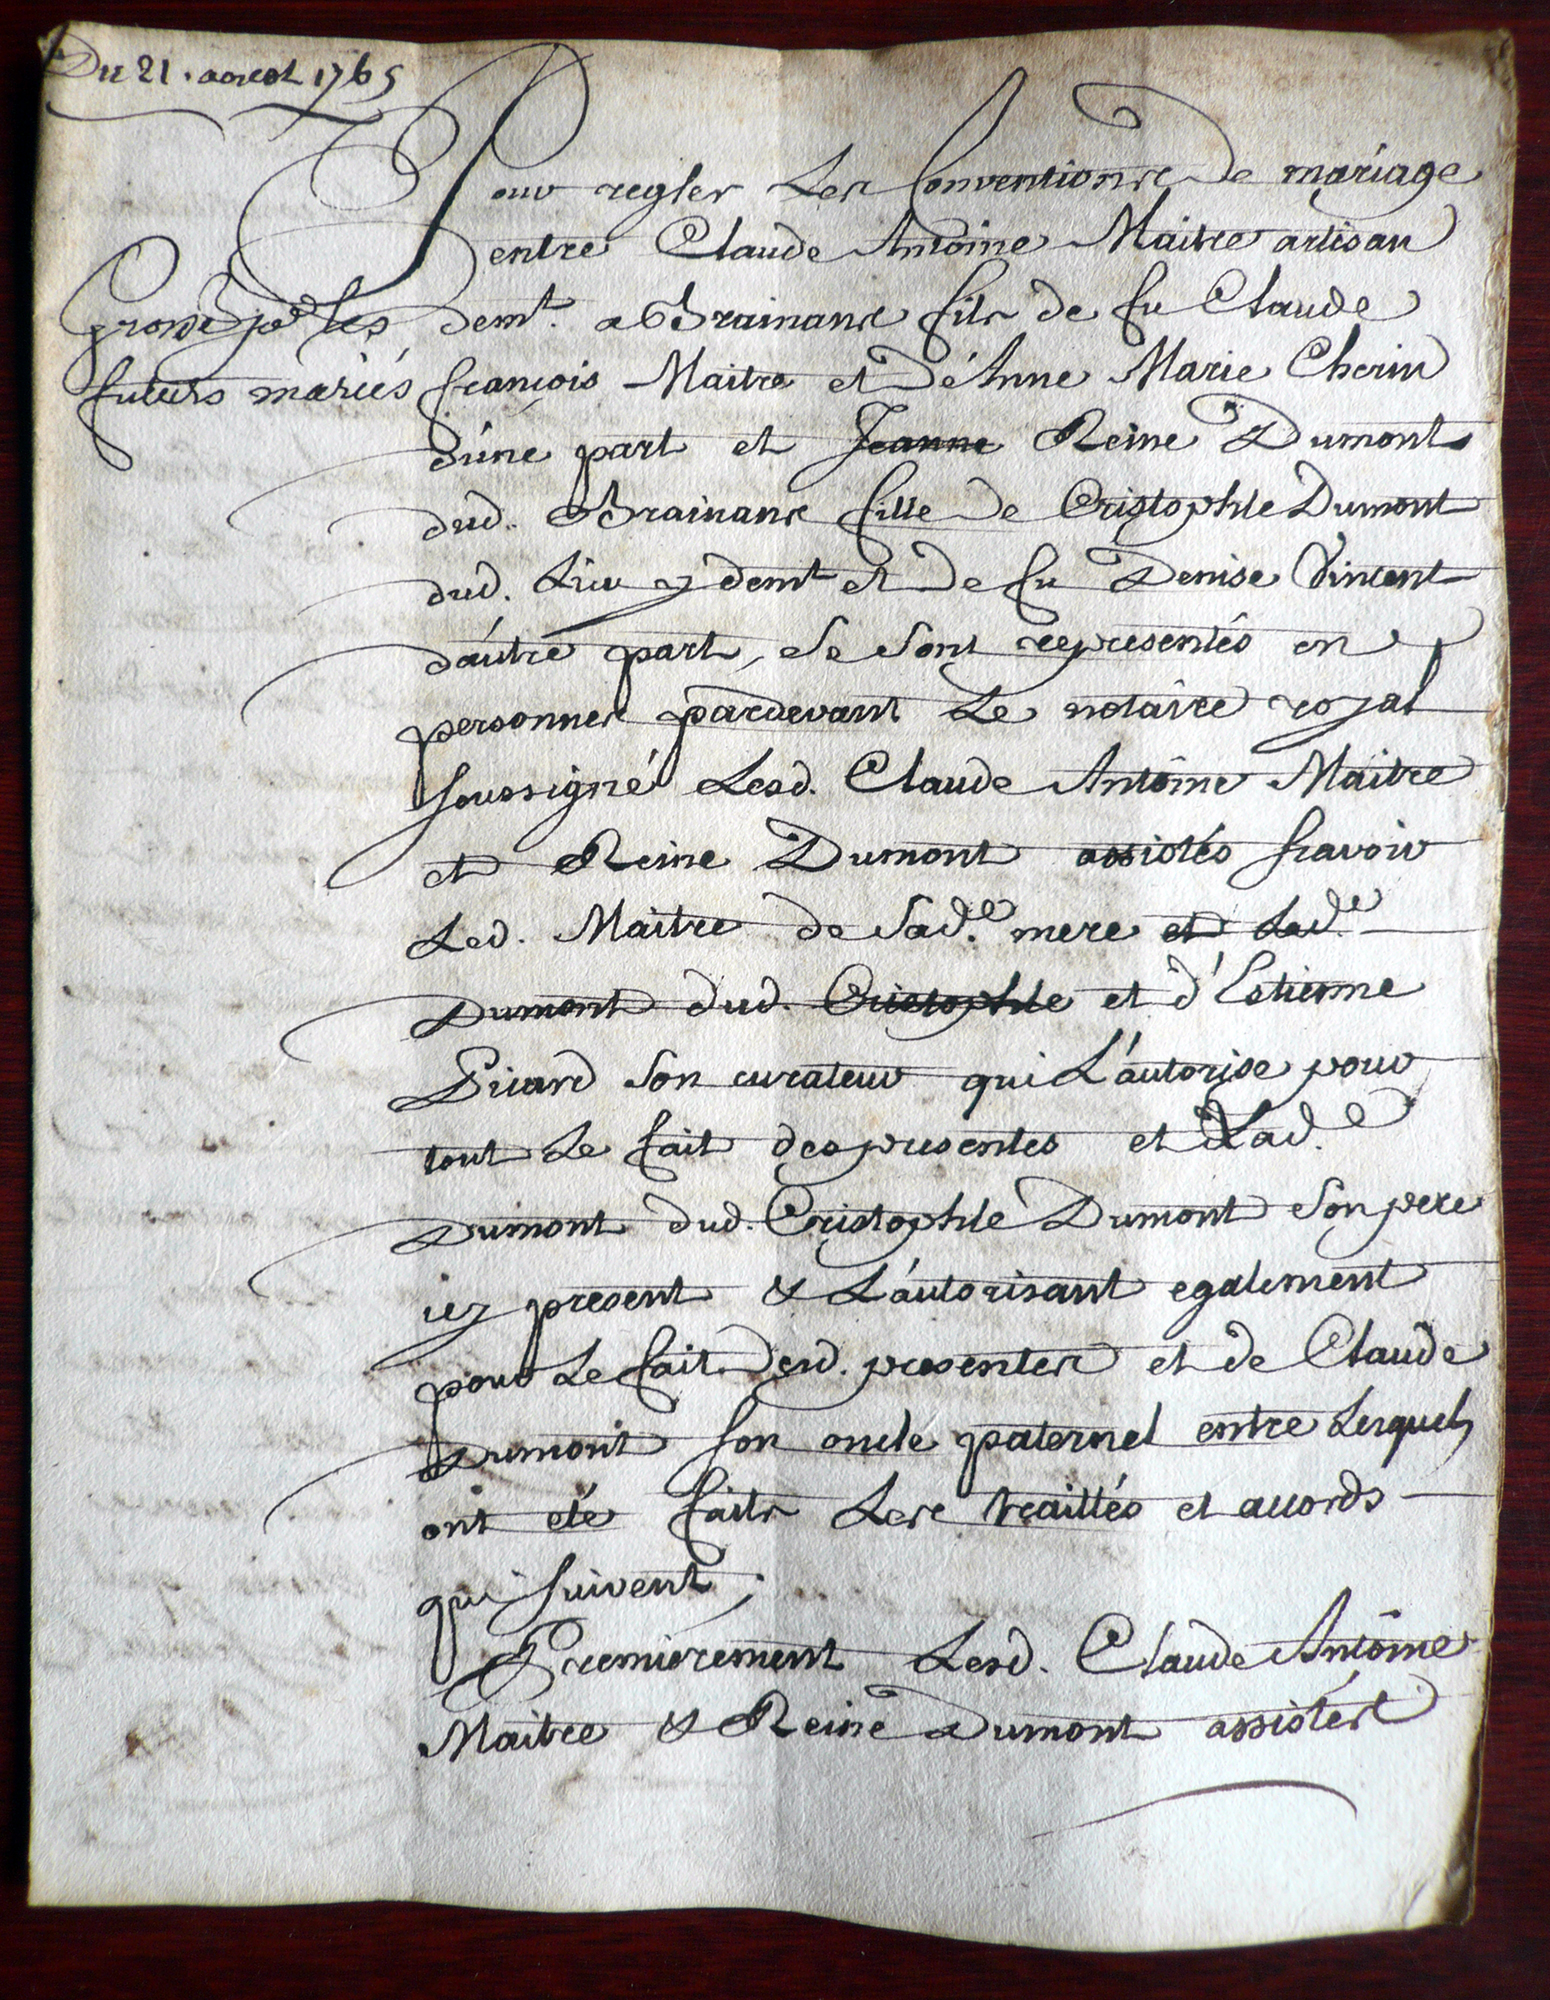 Du 21. aoust 1765
Pour regler Les Conventions de mariage
entre Claude Antoine Maitre artisan
Grossé pr les
futurs mariés
demt. a Brainans fils de fu Claude
françois Maitre et dé Anne Marie Cherin
d'une part et Jeanne Reine Dumont
dud. Brainans fille de Cristophle Dumont
dud. Lieu y demt et de fu Denise Vincent
d'autre part, se sont representés en
personnes pardevant Le notaire royal
soussigné Lesd. Claude Antoine Maitre
et Reine Dumont assistés scavoir
Led. Maitre de Sad.e mere et Lad.e
Dumont dud. Cristophle et d'Estienne
Picard son curateur qui L'autorise pour
tout Le fait des presentes et Lad.e
Dumont dud. Cristophle Dumont son pere
icy present & L'autorisant egalement
pour Le fait desd. presentes et de Claude
Dumont son oncle paternel entre Lesquels
ont eté faits Les traittés et accords
qui suivent;
Premierement Lesd. Claude Antoine
Maitre & Reine Dumont assistés